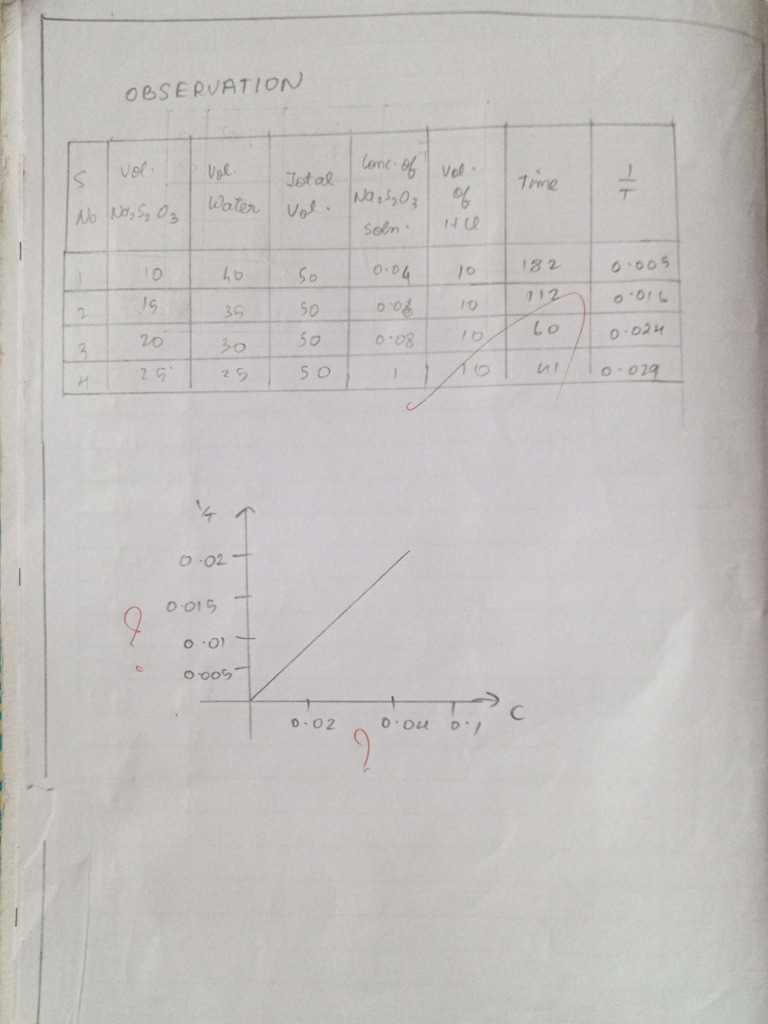 OBSERVATION
S No | Vol. Na2S2O3 | Vol. Water | Total Vol. | Conc. of Na2S2O3 Soln. | Vol. of HCl | Time | 1/T
1 | 10 | 40 | 50 | 0.04 | 10 | 182 | 0.005
2 | 15 | 35 | 50 | 0.06 | 10 | 112 | 0.016
3 | 20 | 30 | 50 | 0.08 | 10 | 60 | 0.024
4 | 25 | 25 | 50 | 1 | 10 | 41 | 0.029
0.02
0.015
?
0.01
0.005
0.02 0.04 0.1 C
?